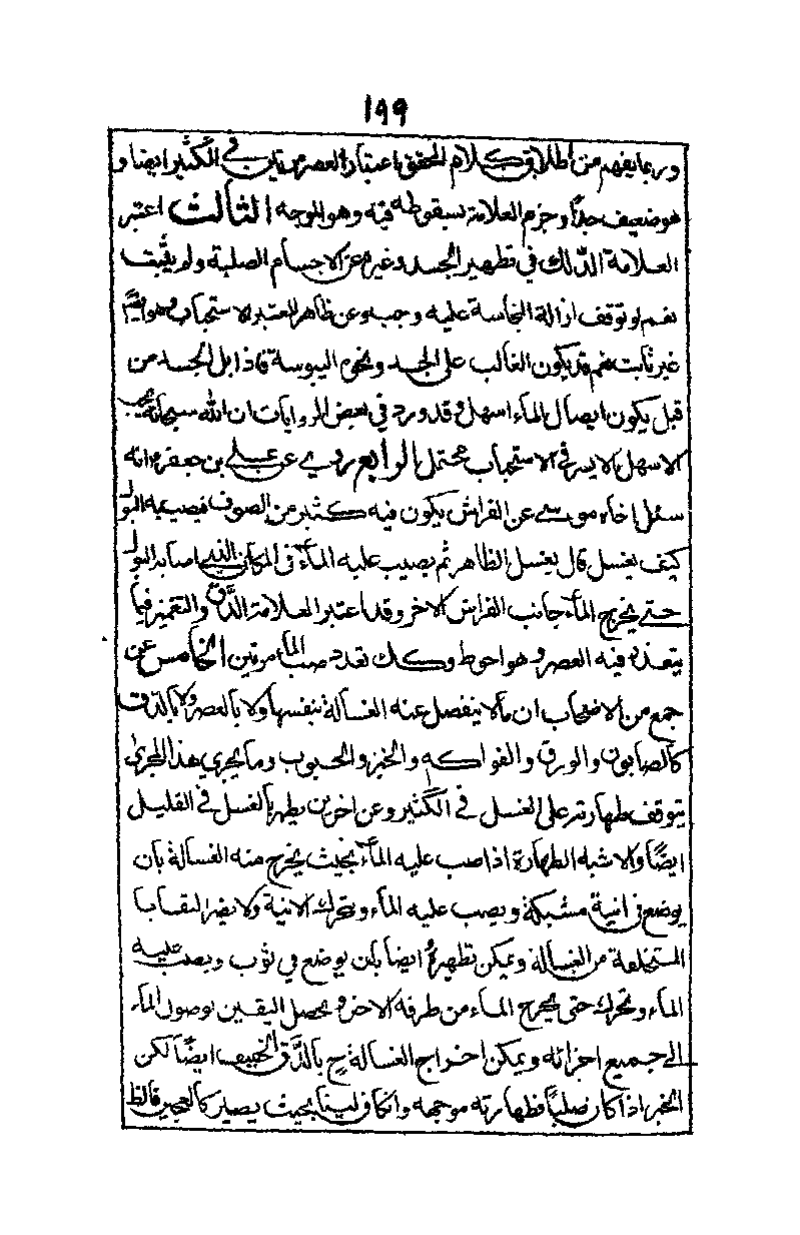 ١٩٩
وربما يفهم من اطلاق كلام المحقق باعتبار العصر مرتين في الكثير ايضا و
هو ضعيف جدًا وجزم العلامة بسقوطه فيه وهو الوجه الثالث اعتبر
العلامة الدلك في تطهير الجسد وغيره من الاجسام الصلبة ولم يثبت
نعم لو توقف ازالة النجاسة عليه وجب وعن ظاهر المعتبر الاستحباب وهو ايضًا
غير ثابت نعم قد يكون الغالب على الجسد ونحوه اليبوسة فاذا بل الجسد من
قبل يكون ايصال الماء اسهل وقد ورد في بعض الروايات ان الله سبحانه يحب
الاسهل الايسر فالاستحباب محتمل الرابع روى عن علي بن جعفر انه
سئل اخاه موسى عن الفراش يكون فيه كثير من الصوف فيصيبه البول
كيف يغسل قال يغسل الظاهر ثم يصب عليه الماء في المكان الذي اصابه البول
حتى يخرج الماء جانب الفراش الاخر وقد اعتبر العلامة الدق والتغميز فيما
يتعذر فيه العصر وهو احوط وكك تعدد صب الماء مرتين الخامس عن
جمع من الاصحاب ان ما لا ينفصل عنه الغسالة بنفسها ولا بالعصر ولا بالدق
كالصابون والورق والفواكه والخبز والحبوب وما يجري هذا المجرى
يتوقف طهارته على الغسل في الكثير وعن اخرين يطهر بالغسل في القليل
ايضًا والاشبه الطهارة اذا صب عليه الماء بحيث يخرج منه الغسالة بان
يوضع في انية مشبكة ويصب عليه الماء ويحرك الانية ولا يضر
المتخلفة من الغسالة ويمكن تطهيره ايضا بان يوضع في ثوب ويصب عليه
الماء ويحرك حتى يخرج الماء من طرفه الاخر ويحصل اليقين بوصول الماء
الى جميع اجزائه ويمكن اخراج الغسالة ح بالدق الخفيف ايضًا لكن
الخبز اذا كان صلبًا فطهارته موجهة وان كان لينا بحيث يصير كالعجين فالظ